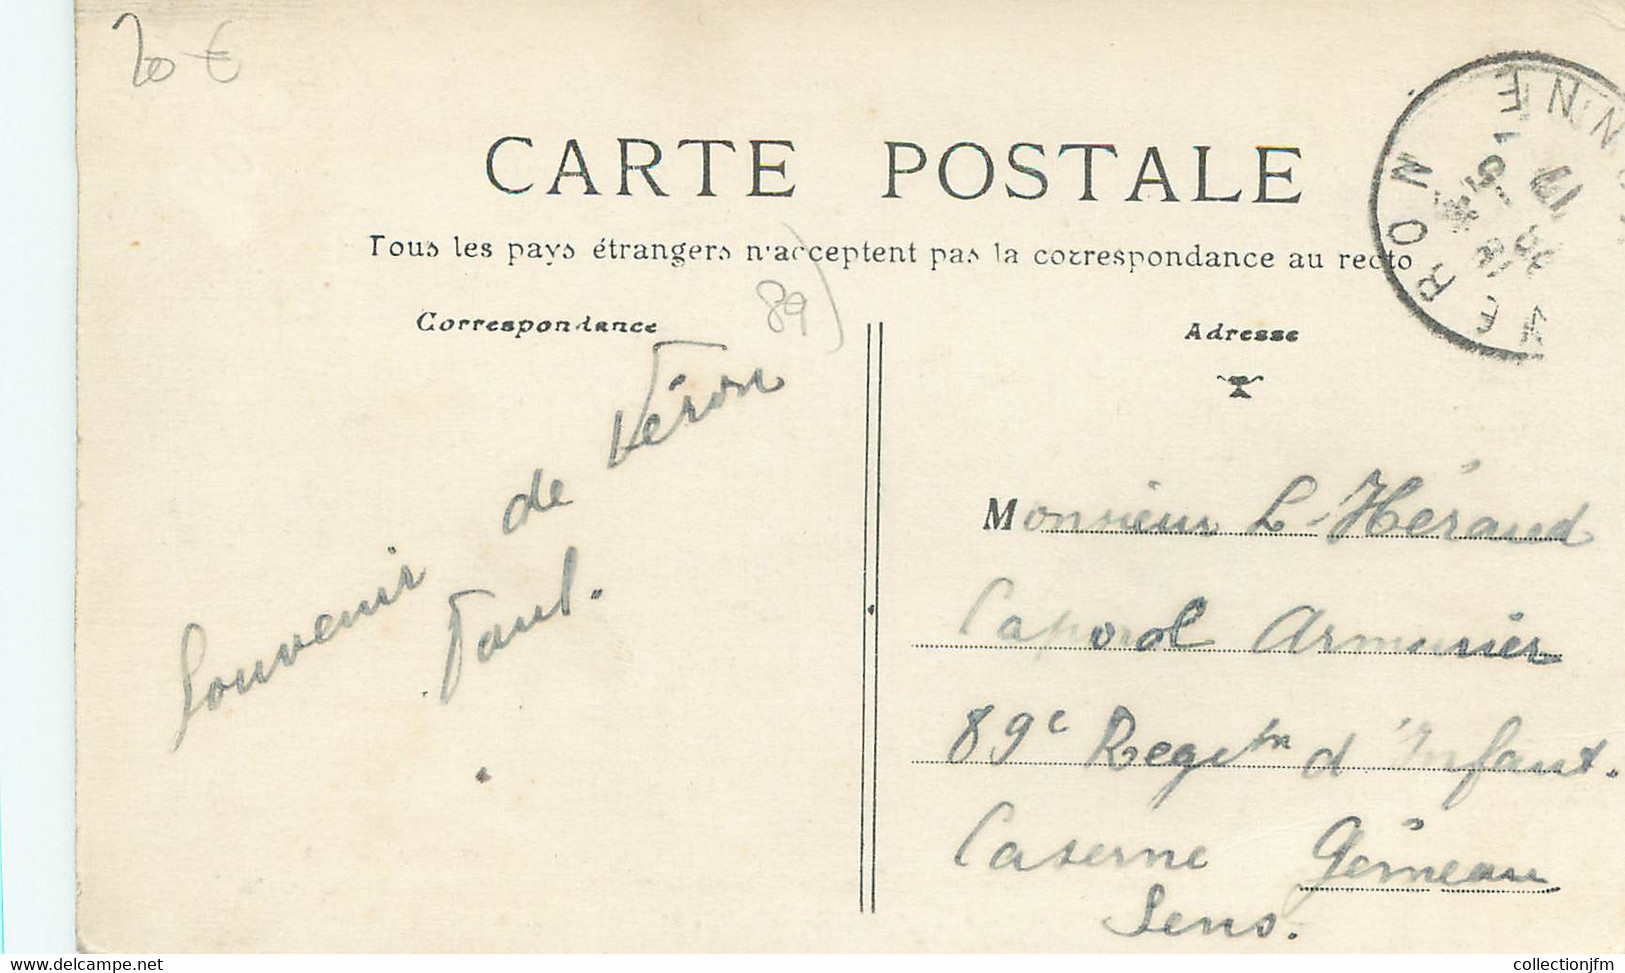 20 €
CARTE POSTALE
Tous les pays étrangers n'acceptent pas la correspondance au recto
Correspondance
89)
Souvenir de Véron
Paul.
Adresse
Monsieur L. Héraud
Caporal Armurier
89e Regitm d'Infant.
Caserne Gémeau
Sens.
VERON
YONNE
https://www.delcampe.net
collectionjfm